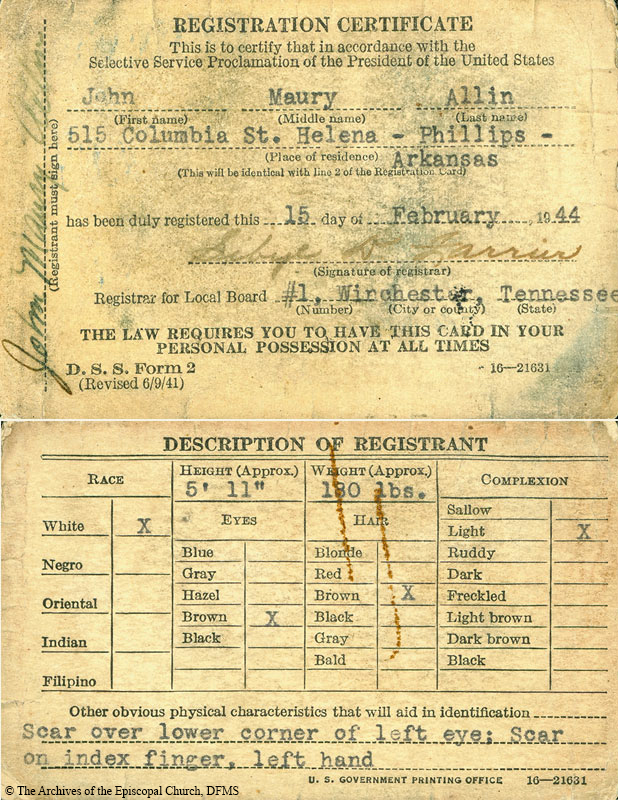 REGISTRATION CERTIFICATE
This is to certify that in accordance with the
Selective Service Proclamation of the President of the United States
John Maury Allin
(First name) (Middle name) (Last name)
515 Columbia St. Helena - Phillips -
(Place of residence) Arkansas
(This will be identical with line 2 of the Registration Card)
has been duly registered this 15 day of February, 1944
(Signature of registrar)
Registrar for Local Board #1, Winchester, Tennessee
(Number) (City or county) (State)
THE LAW REQUIRES YOU TO HAVE THIS CARD IN YOUR
PERSONAL POSSESSION AT ALL TIMES
D. S. S. Form 2 16—21631
(Revised 6/9/41)
(Registrant must sign here)
John Maury Allin
DESCRIPTION OF REGISTRANT
RACE HEIGHT (Approx.) WEIGHT (Approx.) COMPLEXION
5' 11" 180 lbs.
EYES HAIR
White X
Negro
Oriental
Indian
Filipino
Blue
Gray
Hazel
Brown X
Black
Blonde
Red
Brown X
Black
Gray
Bald
Sallow
Light X
Ruddy
Dark
Freckled
Light brown
Dark brown
Black
Other obvious physical characteristics that will aid in identification
Scar over lower corner of left eye; Scar
on index finger, left hand
U. S. GOVERNMENT PRINTING OFFICE 16—21631
© The Archives of the Episcopal Church, DFMS